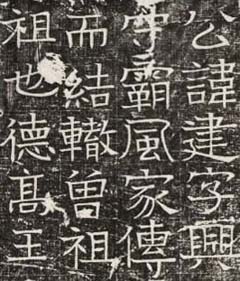 公諱建字興
霸風家傳
而結轍曽祖
祖也德髙王